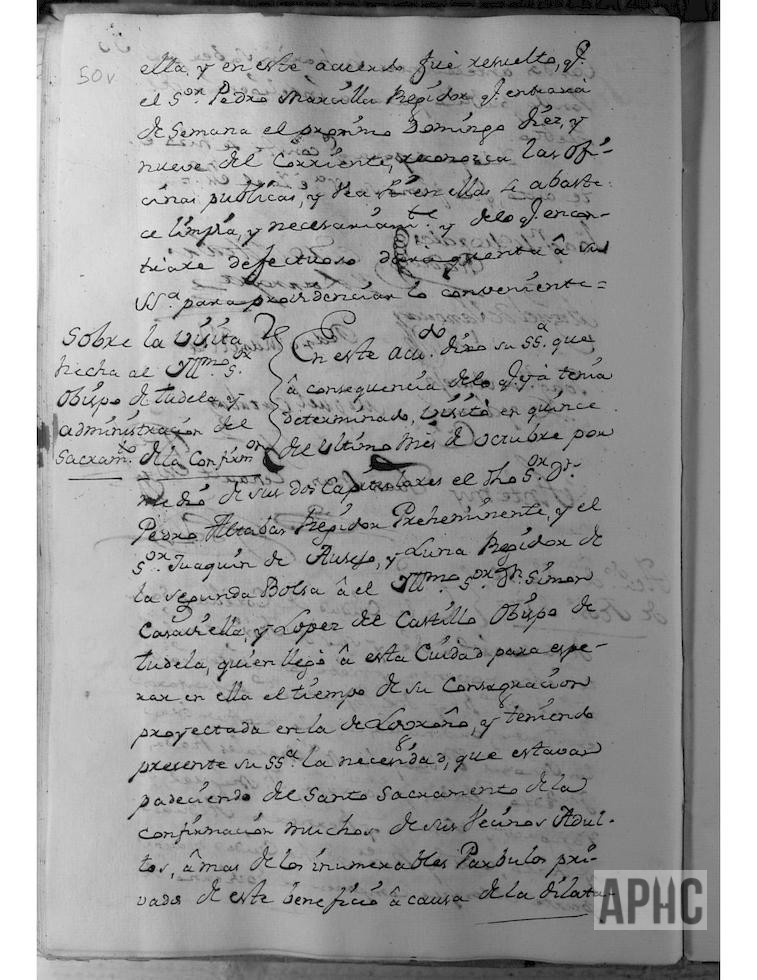 50v
ella, y en este acuerdo fue resuelto, q.e
el S.or Pedro Marcilla Regidor q.e entrará
de Semana el proximo Domingo diez, y
nueve del Corriente, reconozca las Ofi-
cinas publicas, y vea si en ellas se abaste-
ce limpia, y necesariam.te y delo q.e encon-
trare defectuoso dara quenta â su
SS.a para providenciar lo conveniente=
Sobre la visita
hecha al Yllmo S.or
Obispo de Tudela, y
administracion del
Sacram.to de la Confirm.on
En este acu.do dixo su SS.a que
â consequencia delo q.e ya tenia
determinado, visitó en quince
del ultimo mes de Octubre por
medio de sus dos Capitulares el dho S.or D.n
Pedro Alcabas Regidor Preheminente, y el
S.or Juaquin de Ausejo, y Luna Regidor de
la segunda Bolsa â el Yllmo S.or D.n Simon
Casaviella, y Lopez del Castillo Obispo de
Tudela, quien llegó â esta Ciudad para espe-
rar en ella el tiempo de su Consagracion
proyectada en la de Logroño, y teniendo
presente su SS.a la necesidad, que estavan
padeciendo del Santo Sacramento de la
Confirmacion muchos de sus Vecinos Adul-
tos, â mas de los inumerables Parbulos pri-
vados de este beneficio â causa de la dilata-
APHC